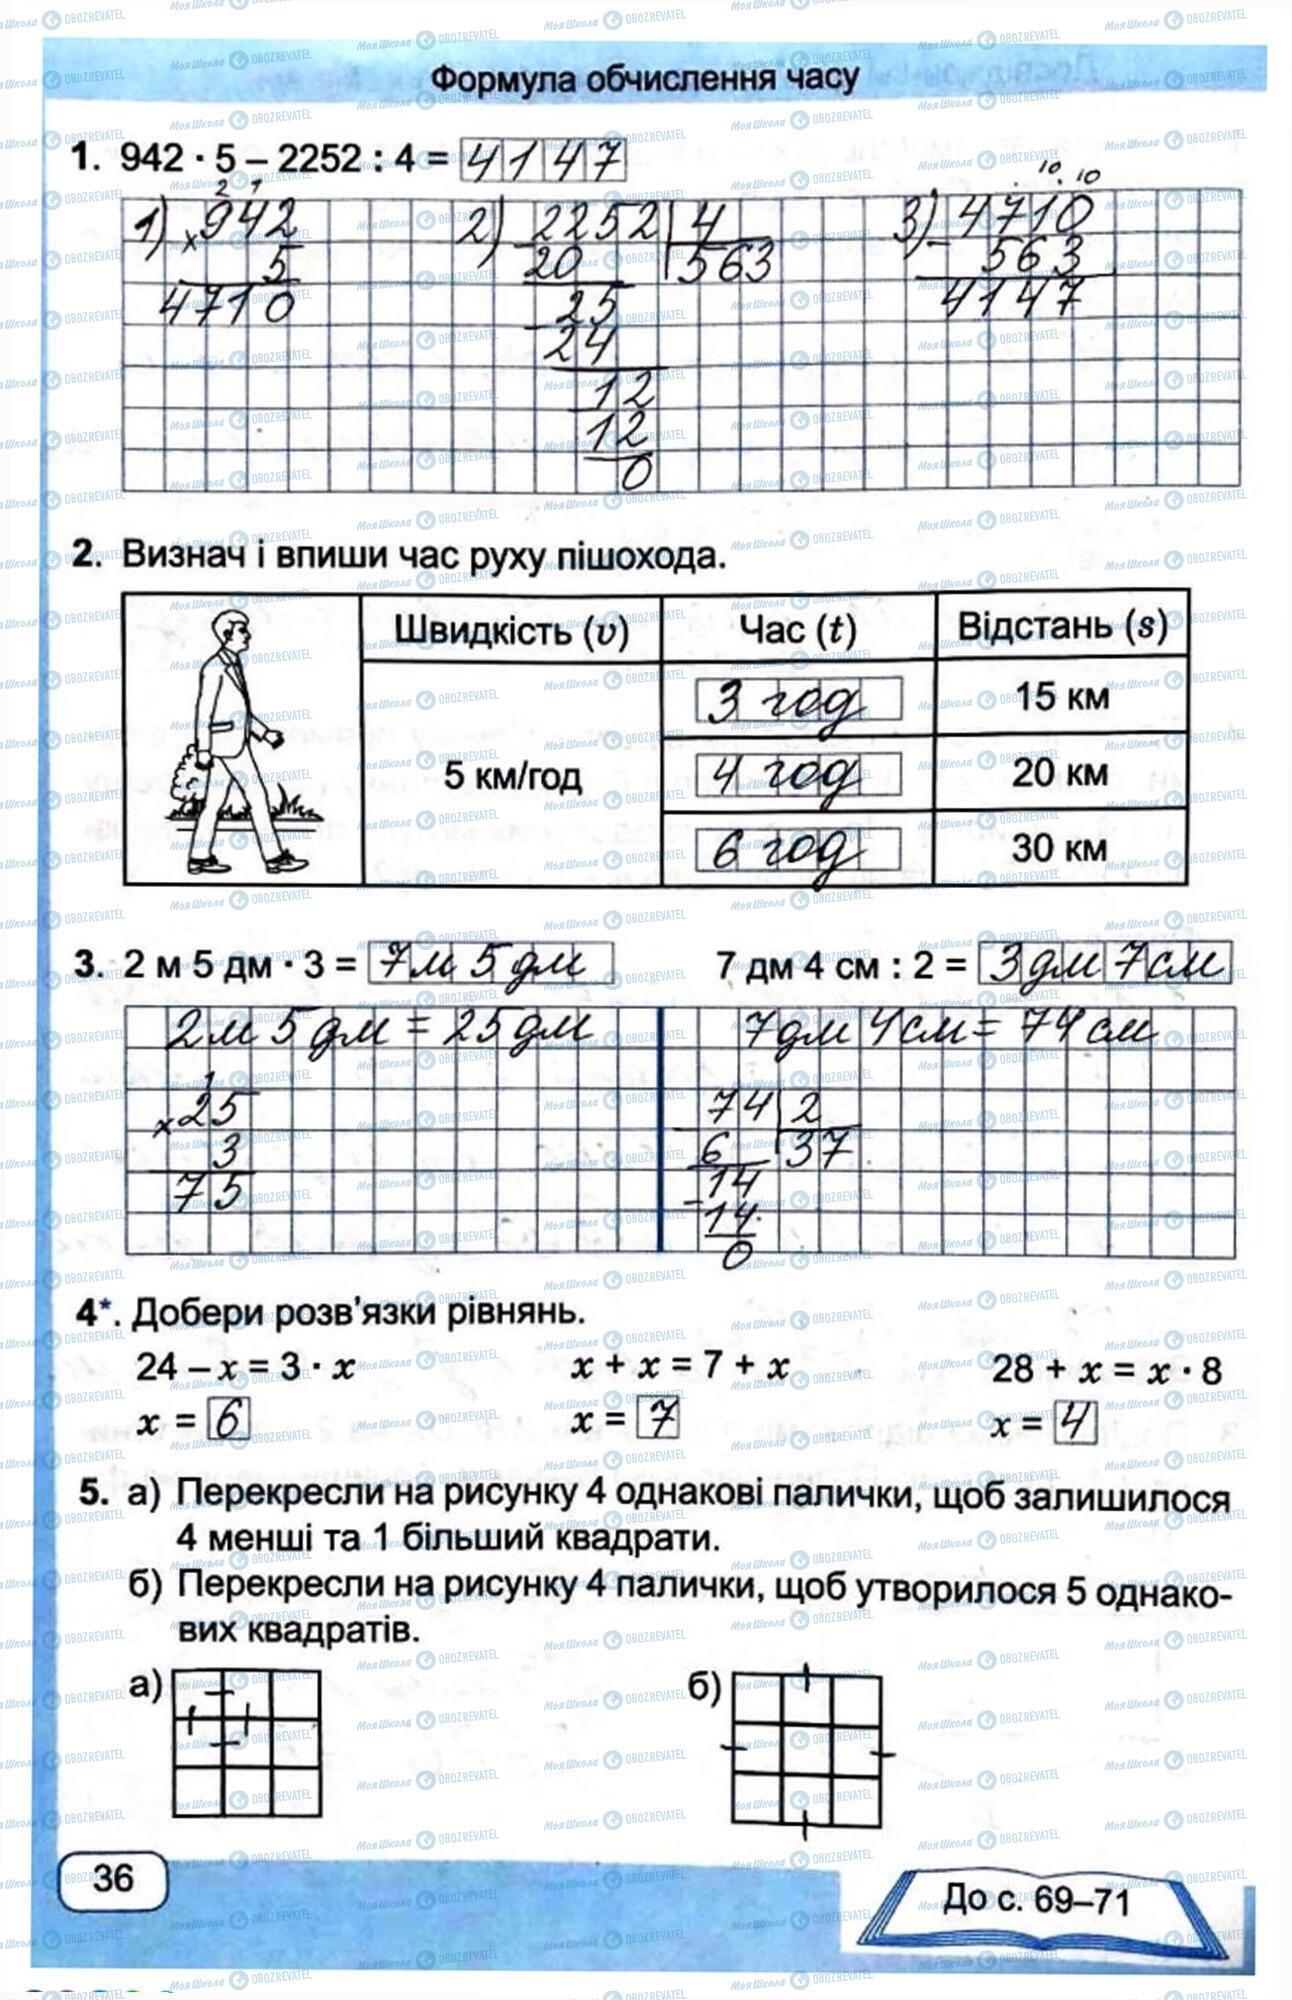 Формула обчислення часу
1. 942 · 5 – 2252 : 4 = 4147
1) 942 2) 2252 4 3) 4710
× 5 20 563 – 563
4710 25 4147
24
12
12
0
2. Визнач і впиши час руху пішохода.
Швидкість (v) Час (t) Відстань (s)
5 км/год
3 год 15 км
4 год 20 км
6 год 30 км
3. 2 м 5 дм · 3 = 7м 5 дм 7 дм 4 см : 2 = 3дм 7см
2м 5 дм = 25 дм 7дм 4см = 74 см
25 74 2
× 3 6 37
75 14
14
0
4*. Добери розв’язки рівнянь.
24 – x = 3 · x x + x = 7 + x 28 + x = x · 8
x = 6 x = 7 x = 4
5. а) Перекресли на рисунку 4 однакові палички, щоб залишилося
4 менші та 1 більший квадрати.
б) Перекресли на рисунку 4 палички, щоб утворилося 5 однако-
вих квадратів.
а) б)
36
До с. 69–71
МояШкола OBOZREVATEL